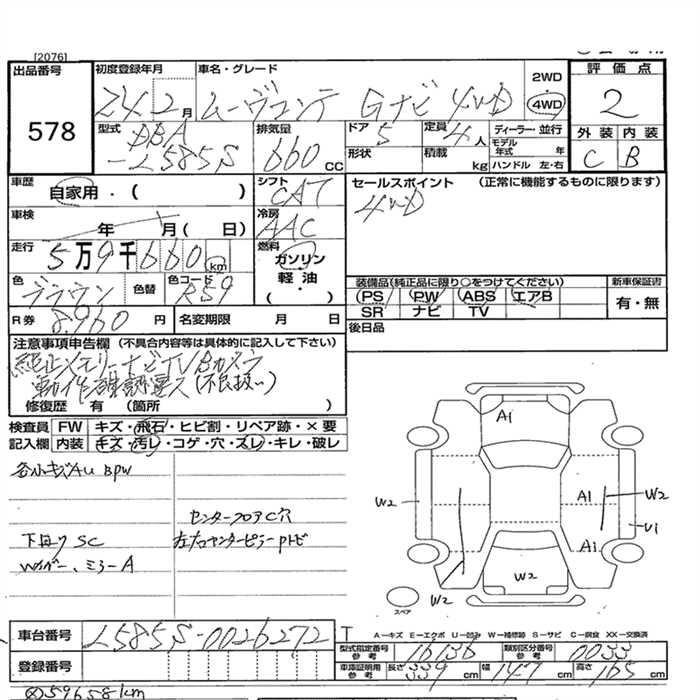 [2076]
出品番号
578
初度登録年月
24 2 月
車名・グレード
ムーヴコンテ Gナビ 4WD
2WD
4WD
評価点
2
外装 内装
C B
型式
DBA
-L585S
排気量
660 CC
ドア 5
形状
定員 4 人
積載 kg
ディーラー・並行
モデル年式 年
ハンドル 左・右
車歴
自家用・( )
シフト
CAT
セールスポイント (正常に機能するものに限ります)
4WD
車検
年 月( 日)
冷房
AAC
走行
5万9千660 km
燃料
ガソリン
軽油
・( )
色
ブラウン
色替
色コード
R59
装備品(純正品に限り○をつけてください)
PS PW ABS エアB
SR ナビ TV
新車保証書
有・無
R券 8,960 円
名変期限 月 日
後日品
注意事項申告欄 (不具合内容等は具体的に記入して下さい)
純正メモリーナビTVBカメラ
動作確認違ス(不良扱い)
修復歴 有 (箇所 )
検査員 FW キズ・飛石・ヒビ割・リペア跡・×要
記入欄 内装 キズ・汚レ・コゲ・穴・スレ・キレ・破レ
各小キズAU BPW
センターフロアC穴
下回りSC
左右センターピラーPトビ
Wカバー、ミラーA
A1
W2
A1
W2
U1
A1
W2
W2
スペア
車台番号 L585S-0026272
登録番号
T
A－キズ E－エクボ U－凹み W－補修跡 S－サビ C－腐食 XX－交換済
型式指定番号 参考 16136
類別区分番号 参考 0033
車庫証明用 参考 長さ 339 cm 幅 147 cm 高さ 165 cm
59658km